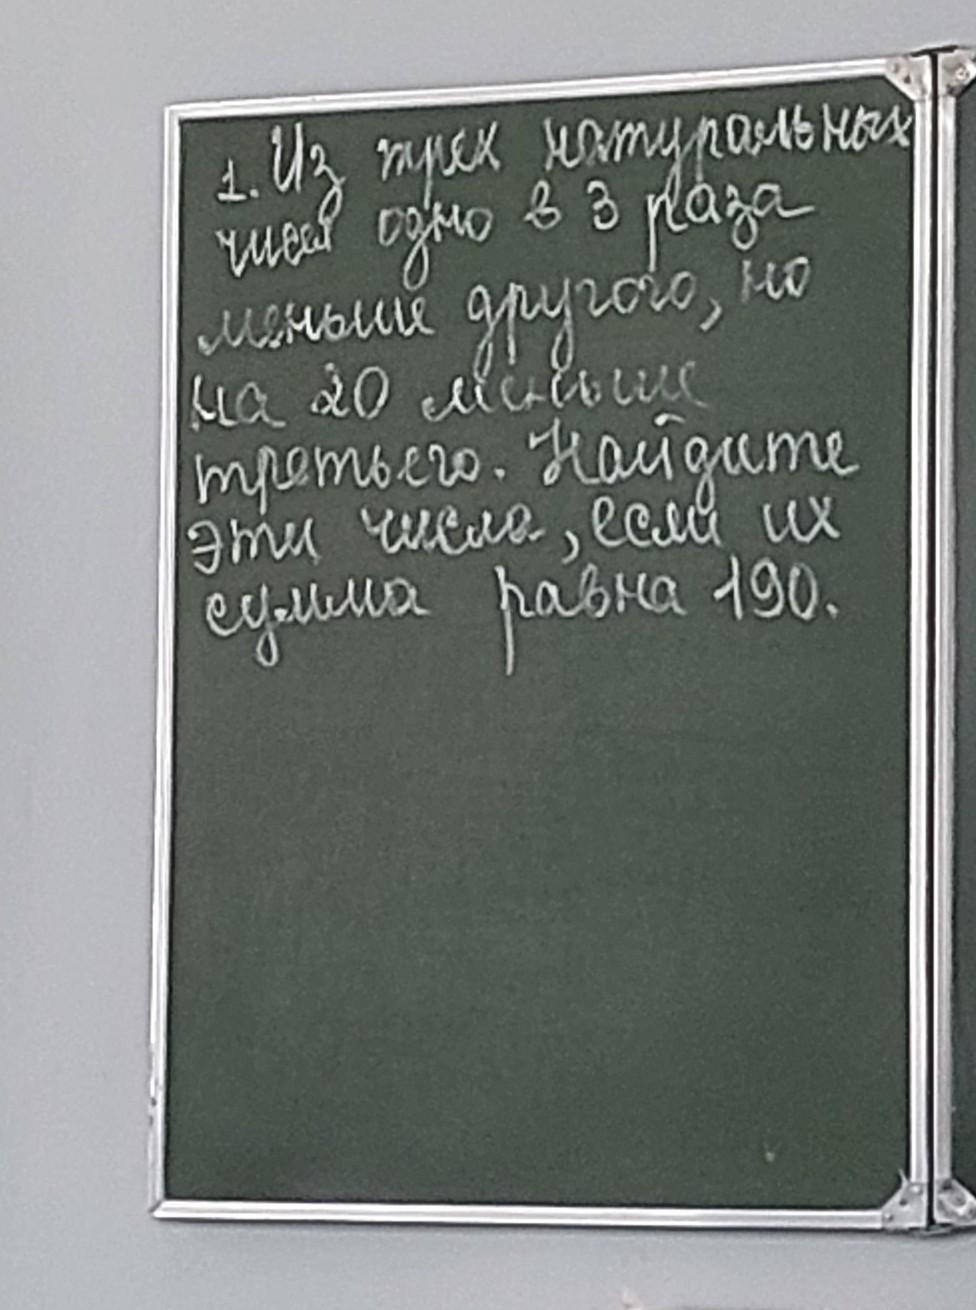 1. Из трех натуральных
чисел одно в 3 раза
меньше другого, но
на 20 меньше
третьего. Найдите
эти числа, если их
сумма равна 190.